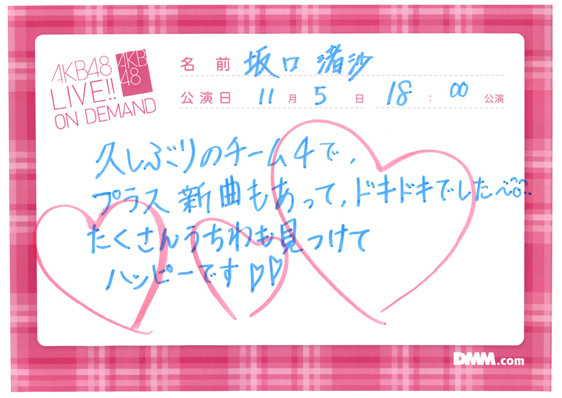 AKB48
LIVE!!
ON DEMAND
AKB
48
名前 坂口 渚沙
公演日 11月5日 18:00公演
久しぶりのチーム4で、
プラス新曲もあって、ドキドキでした〜
たくさんうちわも見つけて
ハッピーです♡♡
DMM.com